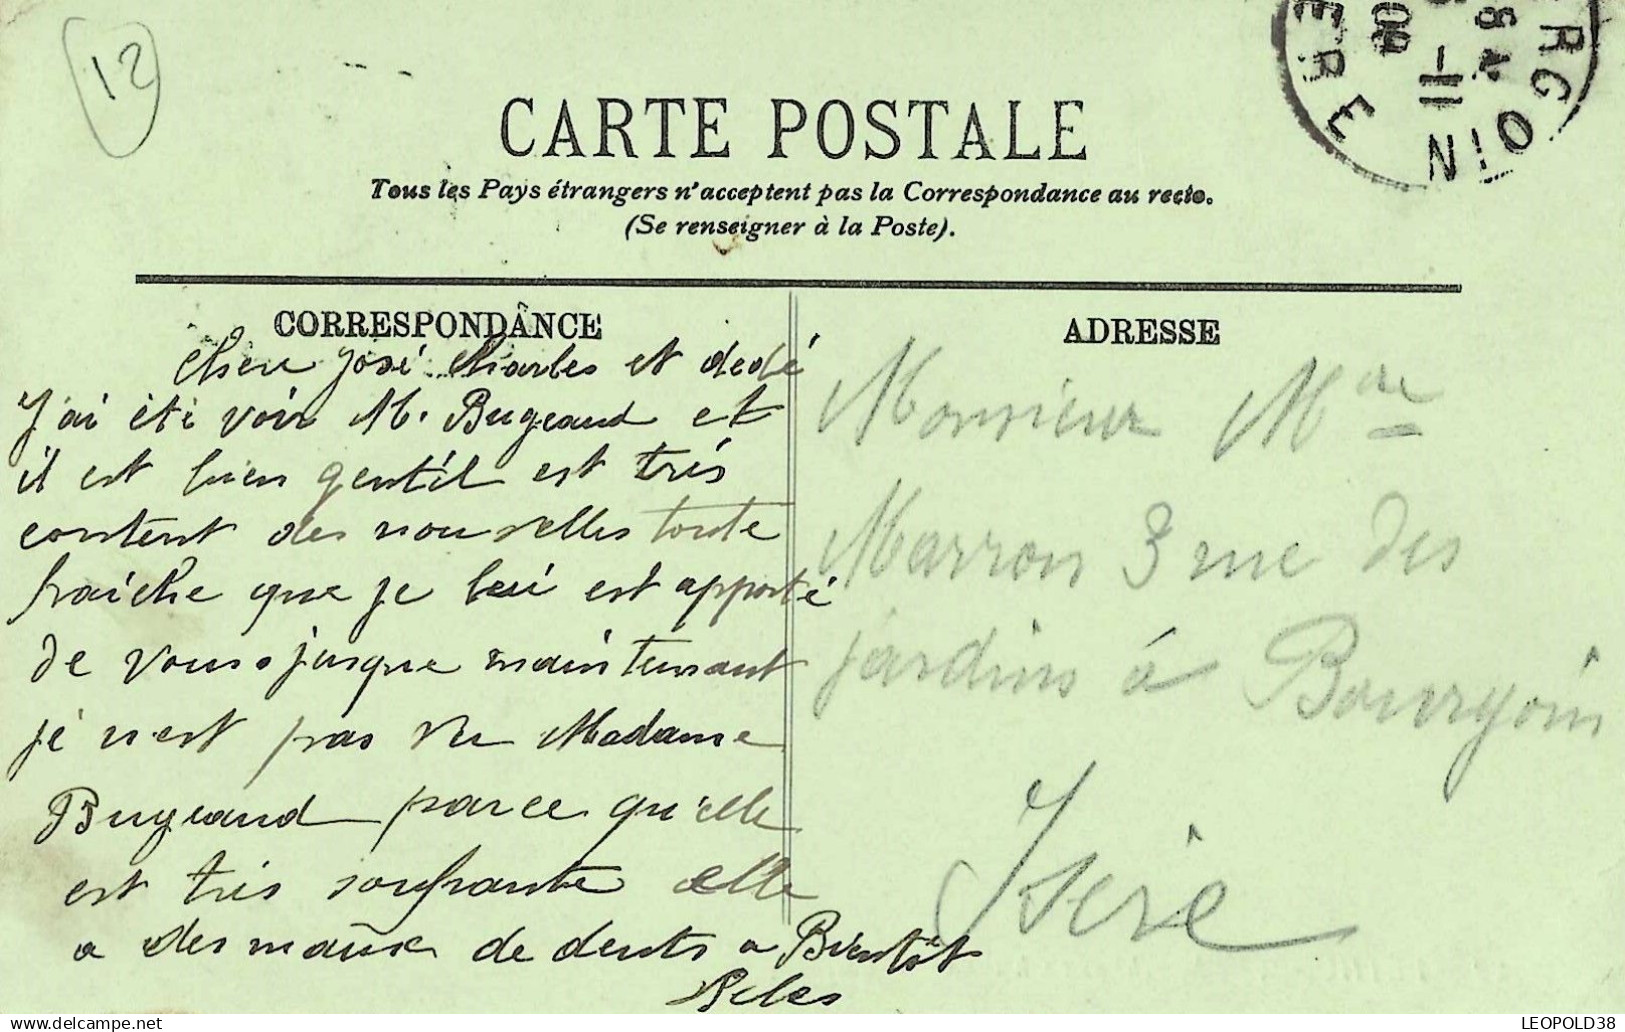 12
CARTE POSTALE
Tous les Pays étrangers n'acceptent pas la Correspondance au recto.
(Se renseigner à la Poste).
RGOIN
ERE
11
09
CORRESPONDANCE
chere José Charles et dedé
J'ai été voir M. Bugeaud et
il est bien gentil est très
content des nouvelles toute
fraiche que je lui est apporté
de vous jusque maintenant
je n'est pas vu Madame
Bugeaud parce qu'elle
est très soufrante elle
a des maux de dents a Bientôt
ADRESSE
Monsieur Mme
Marron 3 rue des
jardins à Bourgoin
Isère
LEOPOLD38